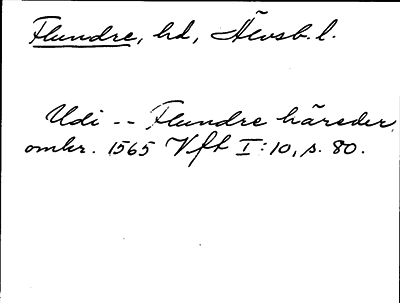 Flundre, hd, Älvsb. l.
Udi -- Flundre häreder
omkr. 1565 Vft I:10, s. 80.